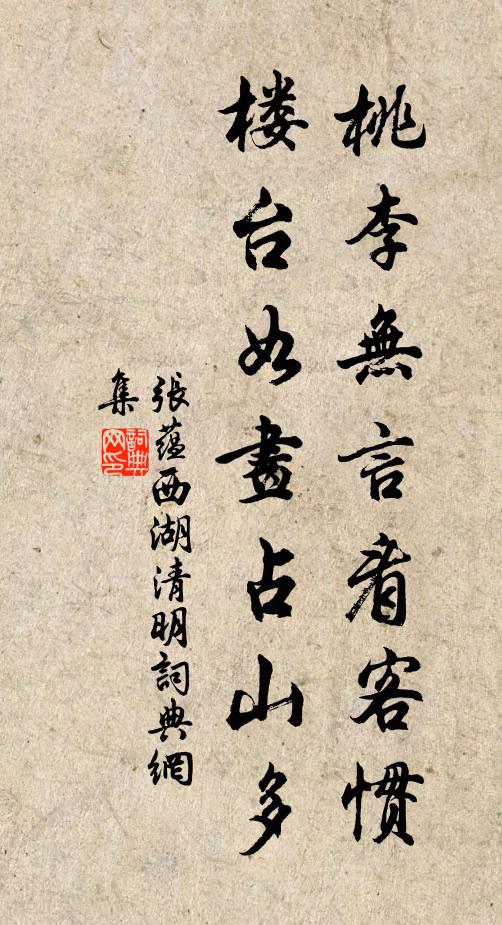 桃李無言看客慣
楼台如畫占山多
張蘊西湖清明詞典網
集
詞典网印